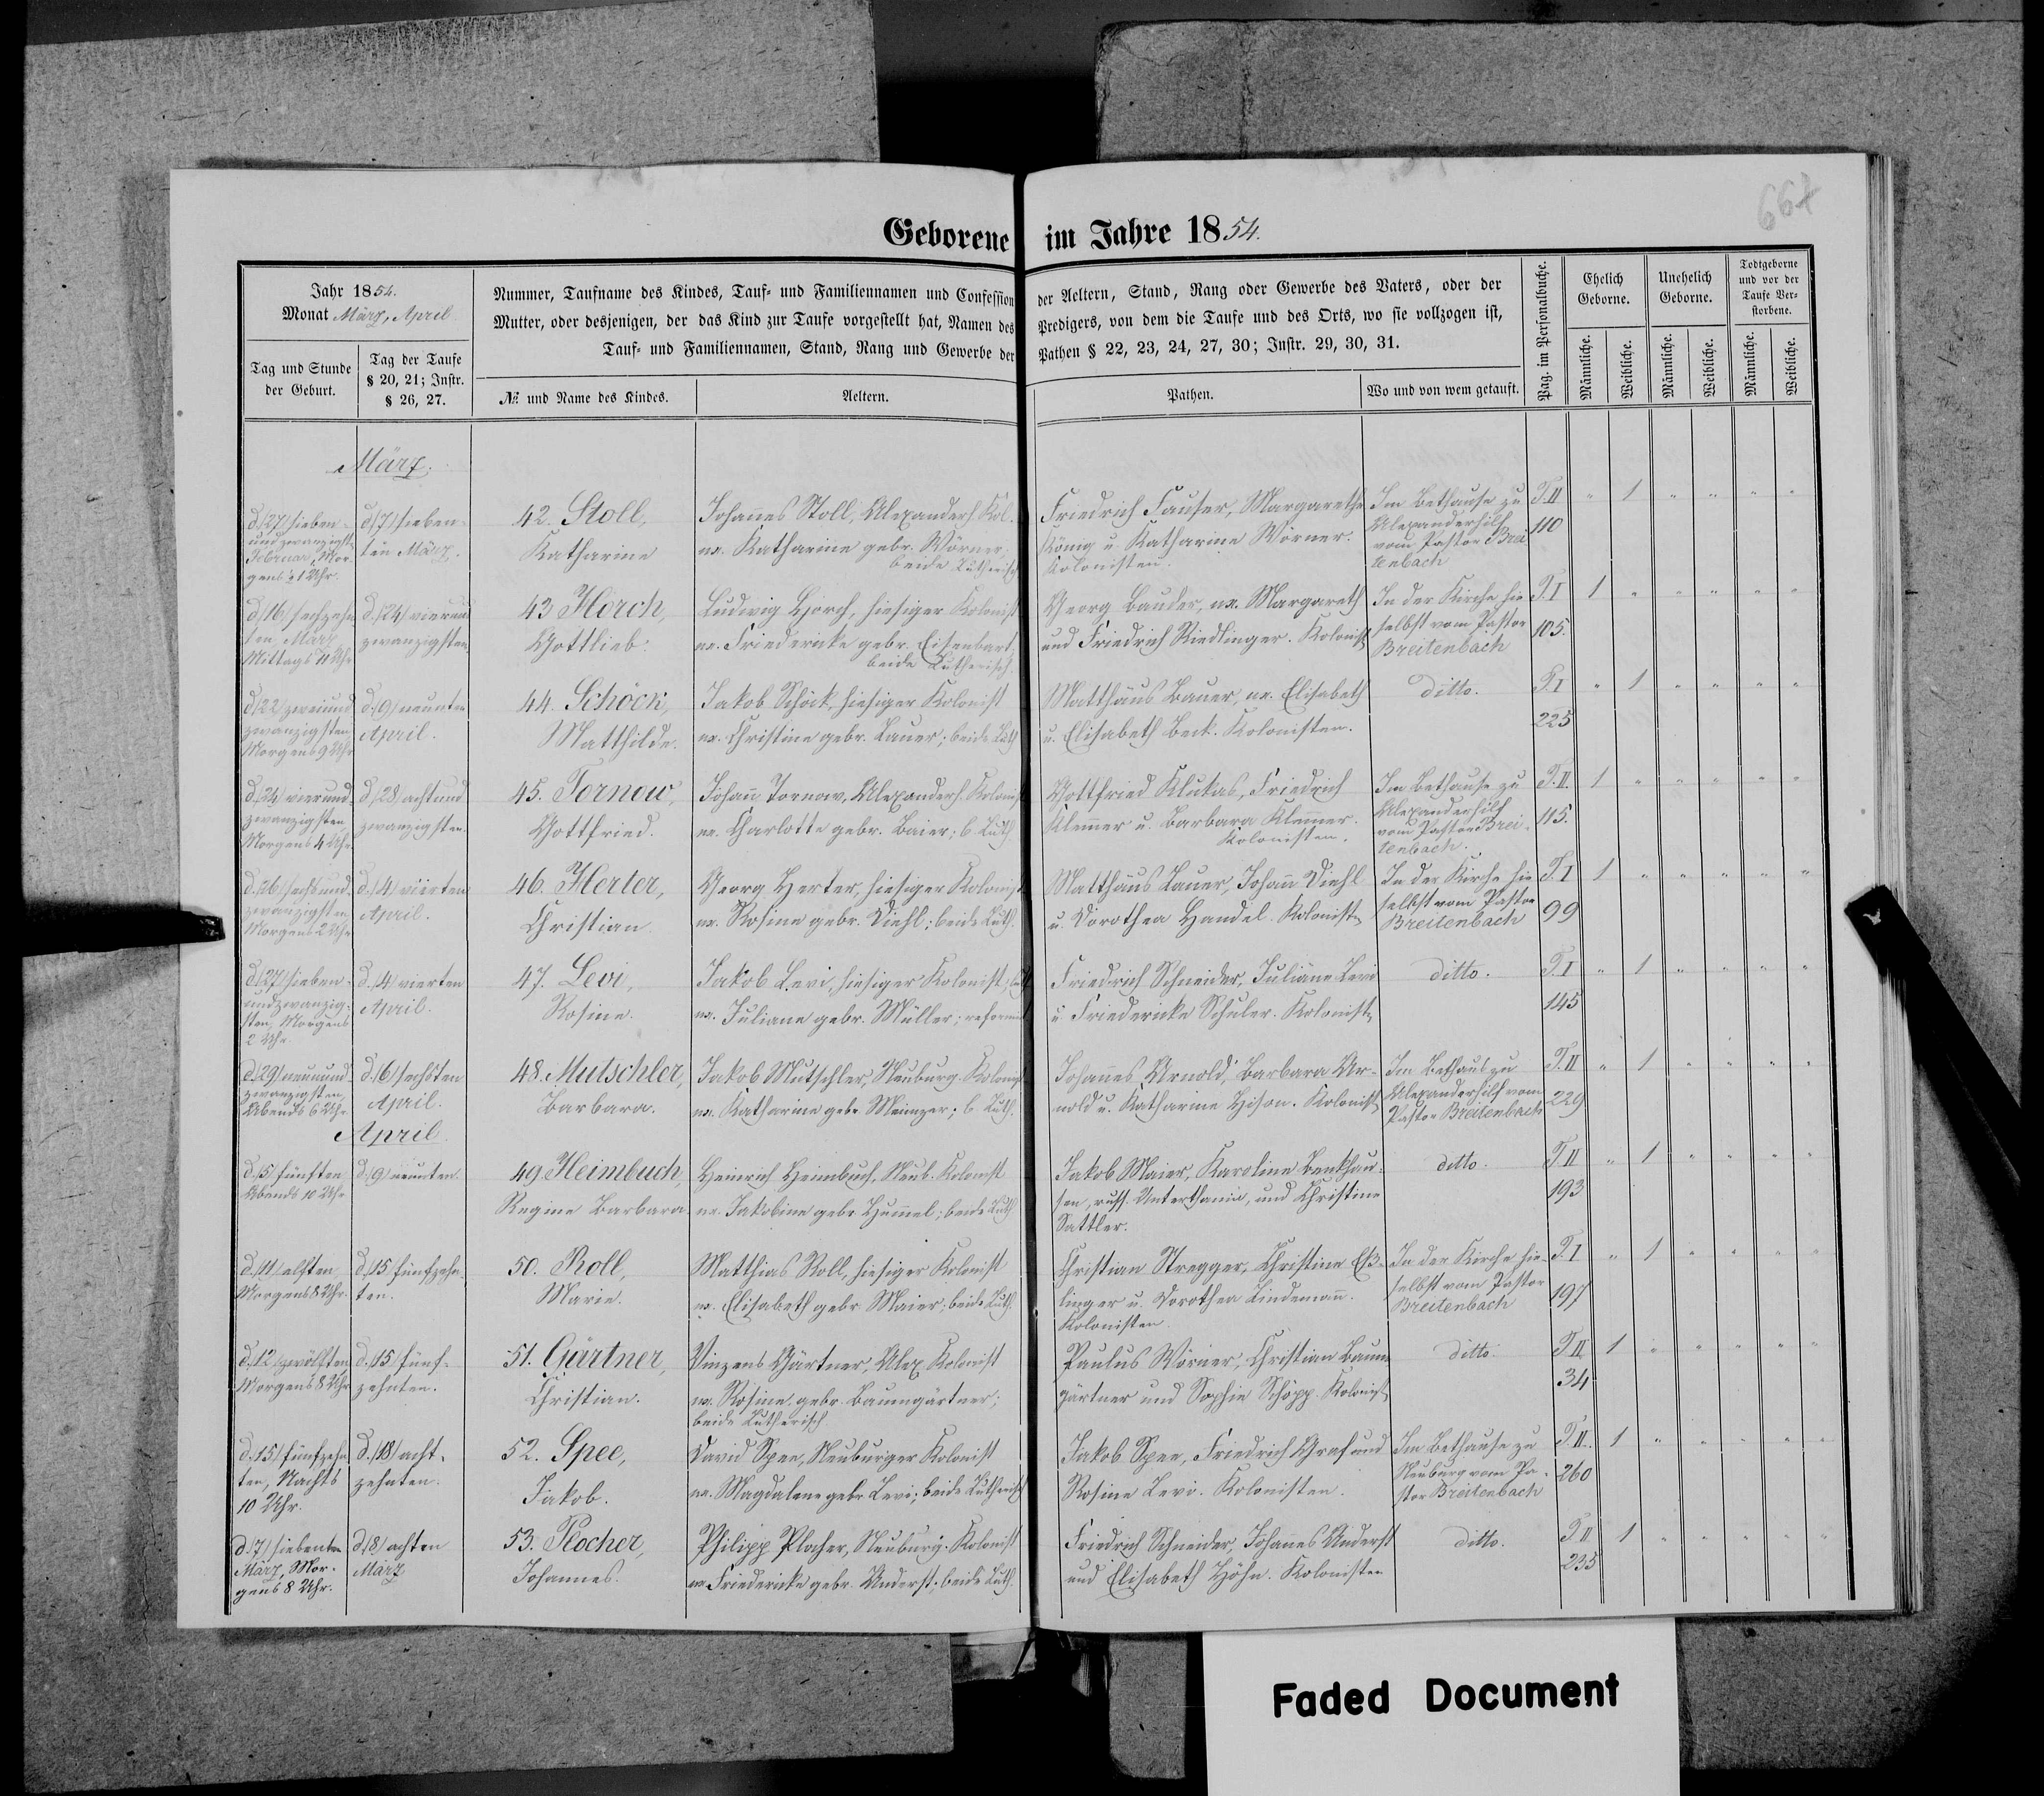 664
Geborene im Jahre 1854.
Jahr 1854.
Monat März, April
Tag und Stunde
der Geburt.
Tag der Taufe
§ 20, 21; Instr.
§ 26, 27.
Nummer, Taufname des Kindes, Tauf- und Familiennamen und Confession der Aeltern, Stand, Rang oder Gewerbe des Vaters, oder der
Mutter, oder desjenigen, der das Kind zur Taufe vorgestellt hat, Namen des Predigers, von dem die Taufe und des Orts, wo sie vollzogen ist,
Tauf- und Familiennamen, Stand, Rang und Gewerbe der Pathen § 22, 23, 24, 27, 30; Instr. 29, 30, 31.
№ und Name des Kindes.
Aeltern.
Pathen.
Wo und von wem getauft.
Pag. im Personalbuche.
Ehelich
Geborne.
Unehelich
Geborne.
Todtgeborne
und vor der
Taufe Ver-
storbene.
Männliche.
Weibliche.
Männliche.
Weibliche.
Männliche.
Weibliche.
März.
d. (27) sieben-
undzwanzigst.
Februar, Mor-
gens 1 Uhr.
d. (7) sieben-
ten März.
42. Stoll,
Katharine
Johannes Stoll, Alexanderh. Kol.
ux. Katharine gebr. Wörner,
beide Lutherisch
Friedrich Fauser, Margarethe
König u. Katharine Wörner.
Kolonisten.
Im Bethause zu
Alexanderhilf
vom Pastor Brei-
tenbach
T. II
110
" 1 " " " "
d. (16) sechzehn-
ten März
Mittags 11 Uhr
d. (24) vierund
zwanzigsten
43 Horch,
Gottlieb.
Ludwig Horch, hiesiger Kolonist
ux. Friedericke gebr. Eisenbart;
beide Lutherisch.
Georg Bauder, ux. Margareth
und Friedrich Riedlinger. Kolonist
In der Kirche hie
selbst vom Pastor
Breitenbach
T. I
105.
1 " " " " "
d. (22) zweiund
zwanzigsten
Morgen 9 Uhr
d. (9) neunten
April.
44. Schöck,
Matthilde.
Jakob Schöck, hiesiger Kolonist
ux. Christine gebr. Lauer; beide Luth
Matthäus Bauer, ux. Elisabeth
u. Elisabeth Beck. Kolonisten.
ditto.
T. I
225
" 1 " " " "
d. (24) vierund-
zwanzigsten
Morgens 4 Uhr
d. (28) achtund
zwanzigsten.
45. Tornow,
Gottfried.
Johann Tornow, Alexanderh. Kolonist
ux. Charlotte gebr. Baier; b. Luth.
Gottfried Klutas, Friedrich
Klemmer u. Barbara Klemmer.
Kolonisten.
Im Bethause zu
Alexanderhilf
vom Pastor Brei-
tenbach.
T. II.
115.
1 " " " " "
d. (26) sechsund
zwanzigsten
Morgens 2 Uhr
d. (4) vierten
April.
46. Herter,
Christian
Georg Herter, hiesiger Kolonist
ux. Rosine gebr. Diehl; beide Luth.
Matthäus Lauer, Johann Diehl
u. Dorothea Handel. Kolonist
In der Kirche hie
selbst vom Pastor
Breitenbach
T. I
99
1 " " " " "
d. (27) sieben-
undzwanzig-
sten, Morgens
2 Uhr.
d. (4) vierten
April.
47. Levi,
Rosine.
Jakob Levi, hiesiger Kolonist, luth
ux. Juliane gebr. Müller; reformirt
Friedrich Schneider, Juliane Levi
u. Friedericke Schuler. Kolonist
ditto.
T. I
145
" 1 " " " "
d. (29) neunund
zwanzigsten,
Abends 6 Uhr.
d. (6) sechsten
April.
48. Mutschler,
Barbara.
Jakob Mutschler, Neuburg. Kolonist
ux. Katharine gebr. Meinzer; b. Luth.
Johannes Arnold, Barbara Ar-
nold u. Katharine Hison. Kolonist
Im Bethaus zu
Alexanderhilf vom
Pastor Breitenbach
T. II
229
" 1 " " " "
April.
d. (5) fünften
Abends 10 Uhr
d. (9) neunten.
49. Heimbuch,
Regine Barbara.
Heinrich Heimbuch, Neub. Kolonist
ux. Jakobine gebr. Hummel; beide Luth
Jakob Maier, Karoline Benkhau-
sen, russ. Unterthanin, und Christine
Sattler.
ditto.
T. II
193
" 1 " " " "
d. (11) elften
Morgens 8 Uhr.
d. (15) fünfzehn-
ten.
50. Roll,
Marie.
Matthias Roll, hiesiger Kolonist
ux. Elisabeth gebr. Maier; beide Luth.
Christian Stregger, Christine Eß-
linger u. Dorothea Lindemann.
Kolonisten
In der Kirche hie-
selbst vom Pastor
Breitenbach
T. I
197
" 1 " " " "
d. 12 zwölften
Morgens 8 Uhr
d. (15) fünf-
zehnten.
51. Gärtner,
Christian.
Vinzens Gärtner, Alex. Kolonist
ux. Rosine gebr. Baumgärtner;
beide Lutherisch
Paulus Wörner, Christian Baum
gärtner und Sophie Schöpp. Kolonist
ditto.
T. II
34
1 " " " " "
d. (15) fünfzehn
ten, Nachts
10 Uhr.
d. (18) acht-
zehnten.
52. Spee,
Jakob.
David Spee, Neuburger Kolonist
ux. Magdalene gebr. Levi; beide Lutherisch
Jakob Spee, Friedrich Graf und
Rosine Levi. Kolonisten.
Im Bethause zu
Neuburg vom Pa-
stor Breitenbach
T. II.
260
1 " " " " "
d. (7) siebenten
März, Mor-
gens 8 Uhr.
d. (8) achten
März
53. Plocher,
Johannes.
Philipp Plocher, Neuburg. Kolonist
ux. Friedericke gebr. Anderst; beide Luth.
Friedrich Schneider, Johannes Anderst
und Elisabeth Höhn. Kolonisten
ditto.
T. II
235
1 " " " " "
Faded Document